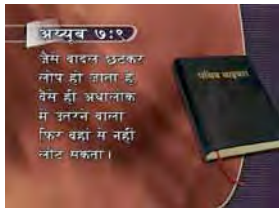 अय्यूब ७:९
जैसे बादल छटकर
लोप हो जाता है
वैसे ही अधोलोक
में उतरने वाला
फिर वहां से नहीं
लौट सकता।
पवित्र बाइबल